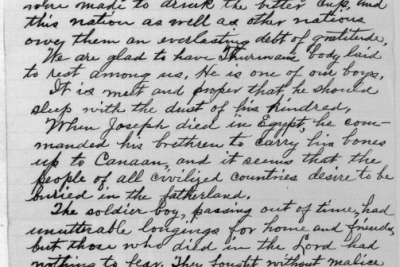 were made to drink the bitter cup, and
this nation as well as other nations
owey them an everlasting debt of gratitude.
We are glad to have Thurman's body laid
to rest among us. He is one of our boys.
It is meet and proper that he should
sleep with the dust of his kindred.
When Joseph died in Egypt, he com-
manded his brethren to carry his bones
up to Canaan, and it seems that the
people of all civilized countries desire to be
buried in the fatherland.
The soldier boy, passing out of time, had
unutterable longings for home and friends,
but those who died in the Lord had
nothing to fear. They fought without malice